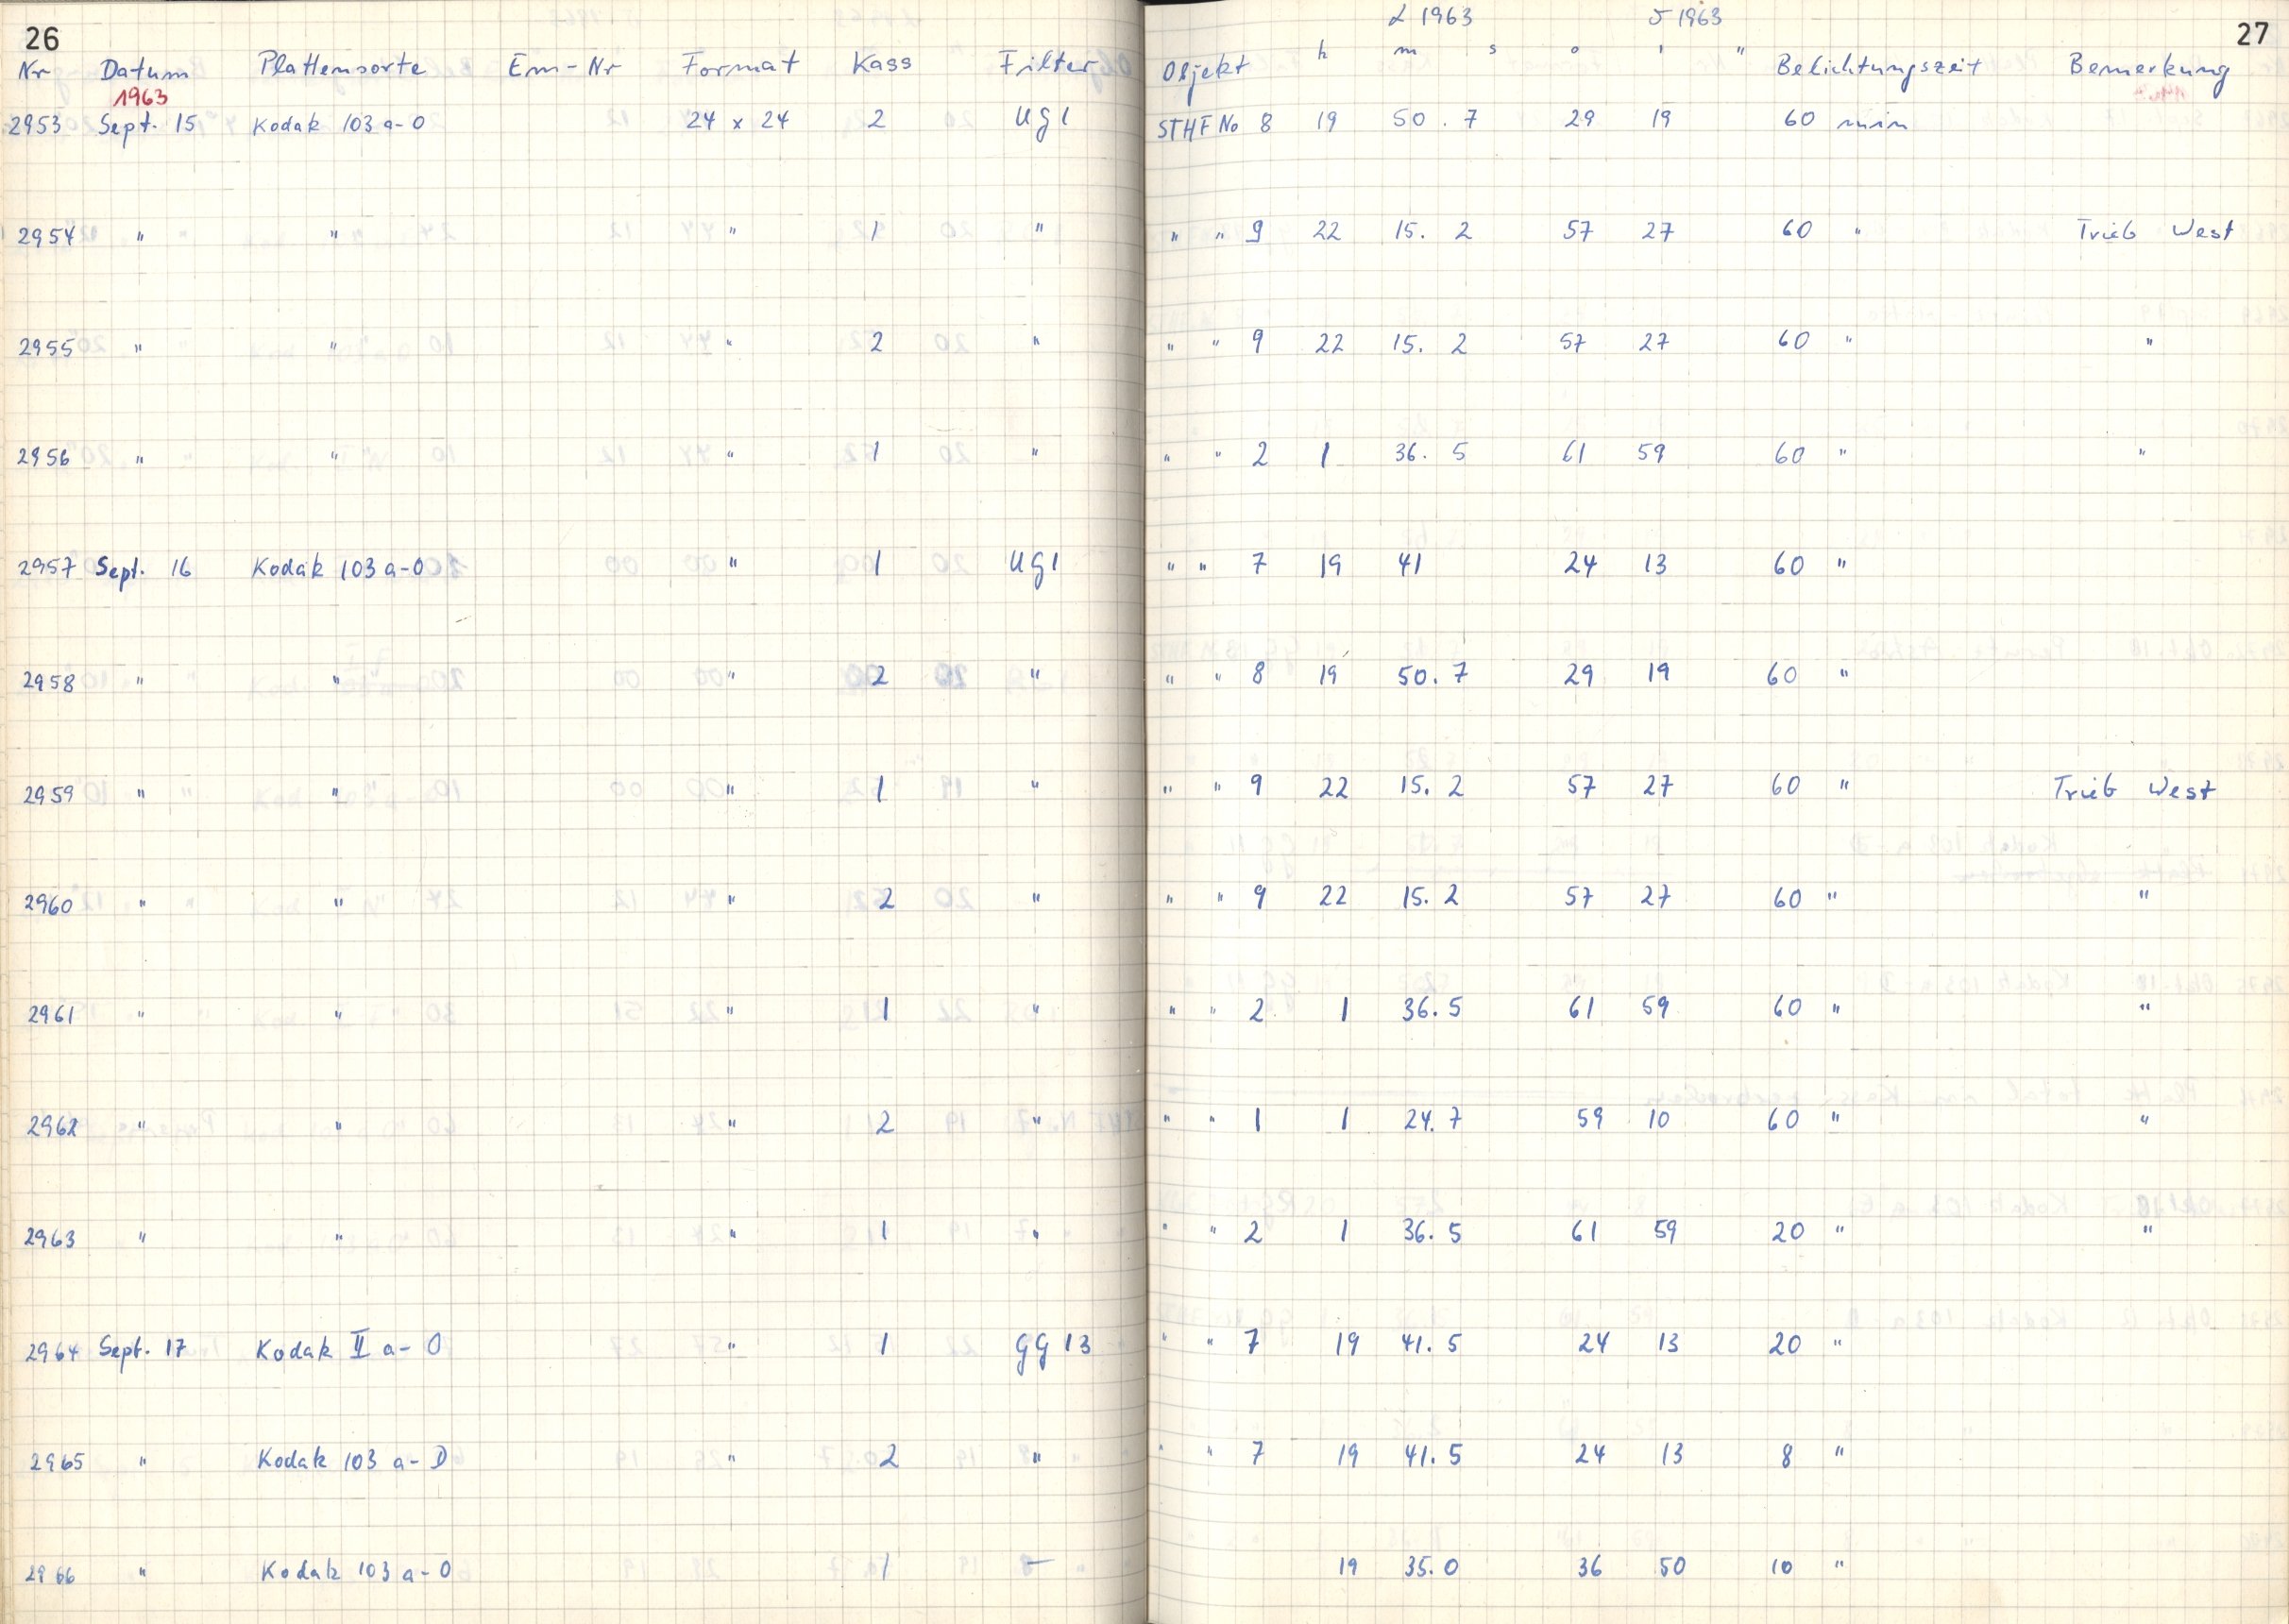 26
α 1963 δ 1963 27
Nr Datum Plattensorte Em-Nr Format Kass Filter Objekt h m s ° ' " Belichtungszeit Bemerkung
1963
2953 Sept. 15 Kodak 103 a-O 24 x 24 2 UG1 STHF No 8 19 50.7 29 19 60 min
2954 " " " 1 " " " 9 22 15.2 57 27 60 " Trieb West
2955 " " " 2 " " " 9 22 15.2 57 27 60 " "
2956 " " " 1 " " " 2 1 36.5 61 59 60 " "
2957 Sept. 16 Kodak 103 a-O " 1 UG1 " " 7 19 41 24 13 60 "
2958 " " " 2 " " " 8 19 50.7 29 19 60 "
2959 " " " 1 " " " 9 22 15.2 57 27 60 " Trieb West
2960 " " " 2 " " " 9 22 15.2 57 27 60 " "
2961 " " " 1 " " " 2 1 36.5 61 59 60 " "
2962 " " " 2 " " " 1 1 24.7 59 10 60 " "
2963 " " " 1 " " " 2 1 36.5 61 59 20 " "
2964 Sept. 17 Kodak II a-O " 1 GG 13 " " 7 19 41.5 24 13 20 "
2965 " Kodak 103 a-D " 2 " " " 7 19 41.5 24 13 8 "
2966 " Kodak 103 a-O 1 — 19 35.0 36 50 10 "